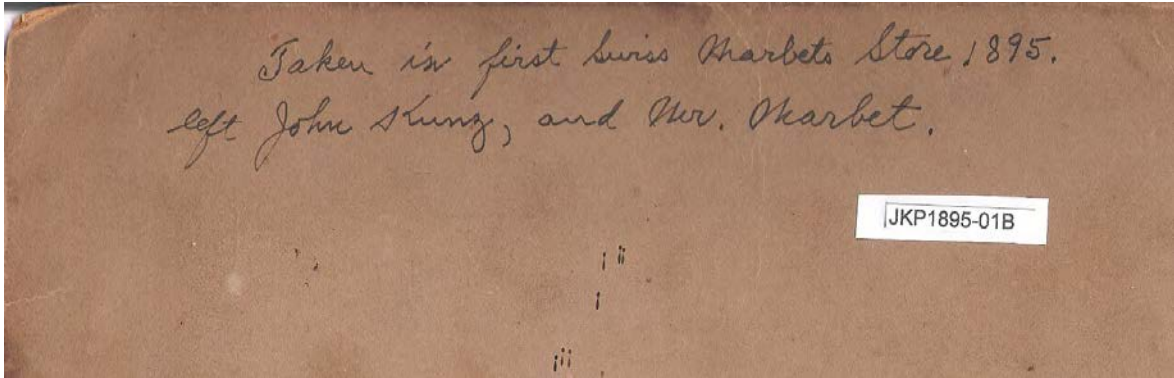 Taken in first Swiss Marbets Store 1895.
left John Kunz, and Mr. Marbet.
JKP1895-01B